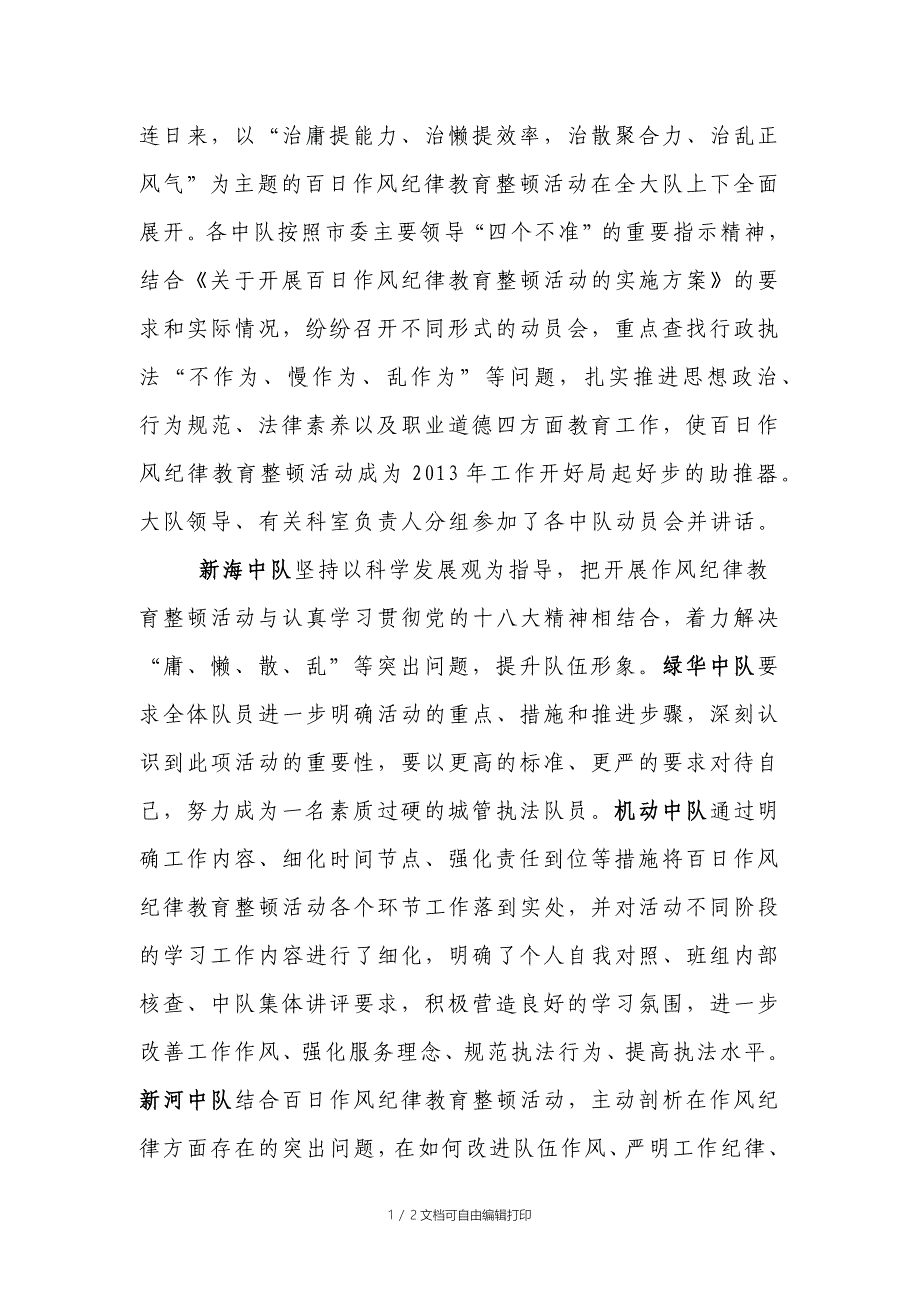 连日来，以“治庸提能力、治懒提效率，治散聚合力、治乱正
风气”为主题的百日作风纪律教育整顿活动在全大队上下全面
展开。各中队按照市委主要领导“四个不准”的重要指示精神，
结合《关于开展百日作风纪律教育整顿活动的实施方案》的要
求和实际情况，纷纷召开不同形式的动员会，重点查找行政执
法“不作为、慢作为、乱作为”等问题，扎实推进思想政治、
行为规范、法律素养以及职业道德四方面教育工作，使百日作
风纪律教育整顿活动成为 2013 年工作开好局起好步的助推器。
大队领导、有关科室负责人分组参加了各中队动员会并讲话。
新海中队坚持以科学发展观为指导，把开展作风纪律教
育整顿活动与认真学习贯彻党的十八大精神相结合，着力解决
“庸、懒、散、乱”等突出问题，提升队伍形象。绿华中队要
求全体队员进一步明确活动的重点、措施和推进步骤，深刻认
识到此项活动的重要性，要以更高的标准、更严的要求对待自
己，努力成为一名素质过硬的城管执法队员。机动中队通过明
确工作内容、细化时间节点、强化责任到位等措施将百日作风
纪律教育整顿活动各个环节工作落到实处，并对活动不同阶段
的学习工作内容进行了细化，明确了个人自我对照、班组内部
核查、中队集体讲评要求，积极营造良好的学习氛围，进一步
改善工作作风、强化服务理念、规范执法行为、提高执法水平。
新河中队结合百日作风纪律教育整顿活动，主动剖析在作风纪
律方面存在的突出问题，在如何改进队伍作风、严明工作纪律、
1 / 2 文档可自由编辑打印